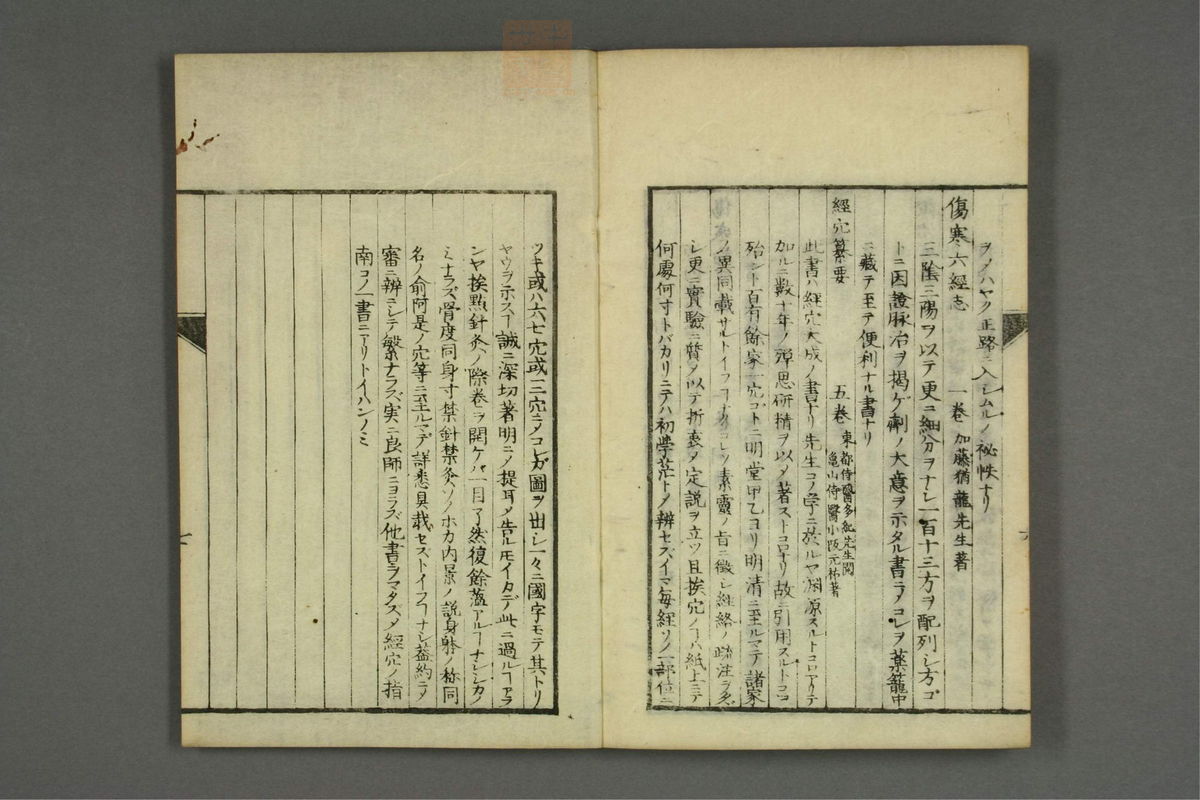 ヲノハヤク正路ニ入シムルノ祕帙ナリ
傷寒六經志 一卷 加藤猶龍先生著
三陰三陽ヲ以テ更ニ細分ヲナシ一百十三方ヲ配列シ方ゴ
トニ因證脉治ヲ揭ゲ劑ノ大意ヲ示タル書ニノコレヲ藥籠中
ニ藏テ至テ便利ナル書ナリ
經穴纂要 五卷 東都侍醫多紀先生閱
龜山侍醫小阪元祐著
此書ハ經穴大成ノ書ナリ先生コノ学ニ於ルヤ淵源スルトコロアリテ
加ルニ数十年ノ潭思研精ヲ以メ著ストコロナリ故ニ引用スルトコロ
殆ント百有餘家一穴ゴトニ明堂甲乙ヨリ明清ニ至ルマテ諸家
ノ異同載サルトイフヿナクコレヲ素靈ノ旨ニ徵シ經絡ノ疏注ヲ
シ更ニ實驗ニ質メ以テ折衷メ定説ヲ立ツ且挨穴ノヿハ紙上ニテ
何處何寸トバカリニテハ初學茫トメ辨セズイマ每經ソノ一部位ニ
ツキ或ハ六七穴或ハ三穴ニメコレガ圖ヲ出シ一々ニ國字モテ其トリ
ヤウヲ示スヿ誠ニ深切著明ニメ提耳メ告ルモイカデ此ニ過ルヿアラ
ンヤ挨點針灸ノ際卷ヲ開ケバ一目了然復餘蘊アルヿナシシカノ
ミナラズ骨度同身寸禁針禁灸ソノホカ内景ノ説身骵ノ称同
名ノ俞阿是ノ穴等ニ至ルマデ詳悉具載セズトイフヿナシ蓋約ニメ
審ニ辨ニシテ繁ナラズ実ニ良師ニヨラズ他書ヲマタズメ經穴ノ指
南コノ一書ニアリトイハンノミ